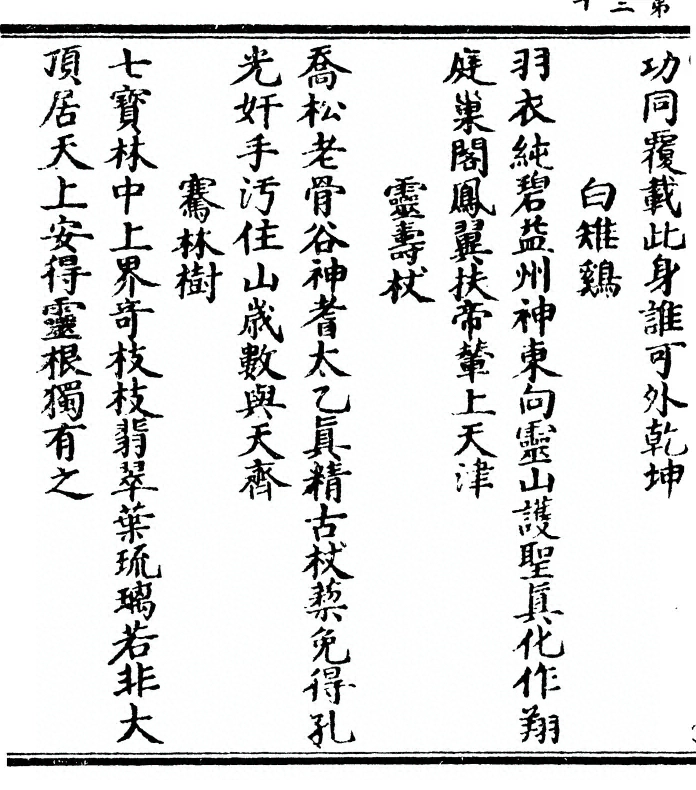 第三十
功同覆載此身誰可外乾坤
白雉鷄
羽衣純碧益州神東向靈山護聖眞化作翔
庭巢閣鳳翼扶帝輦上天津
靈壽杖
喬松老骨谷神耆太乙眞精古杖藜免得孔
光奸手汚住山歲數與天齊
騫林樹
七寶林中上界奇枝枝翡翠葉琉璃若非大
頂居天上安得靈根獨有之